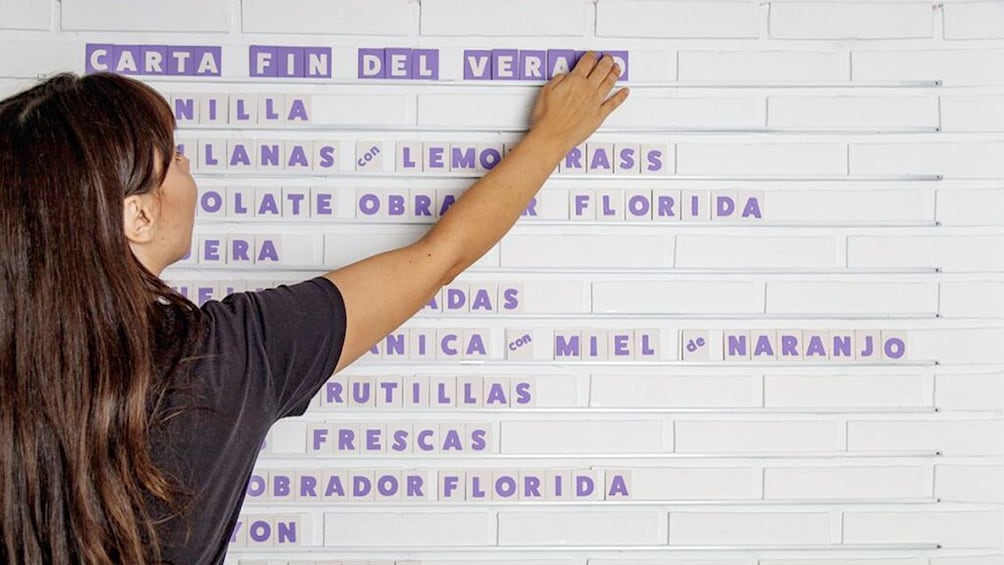 CARTA FIN DEL VERANO
NILLA
LLANAS con LEMONGRASS
OLATE OBRADOR FLORIDA
ERA
ADAS
ANICA con MIEL de NARANJO
RUTILLAS
FRESCAS
OBRADOR FLORIDA
YON